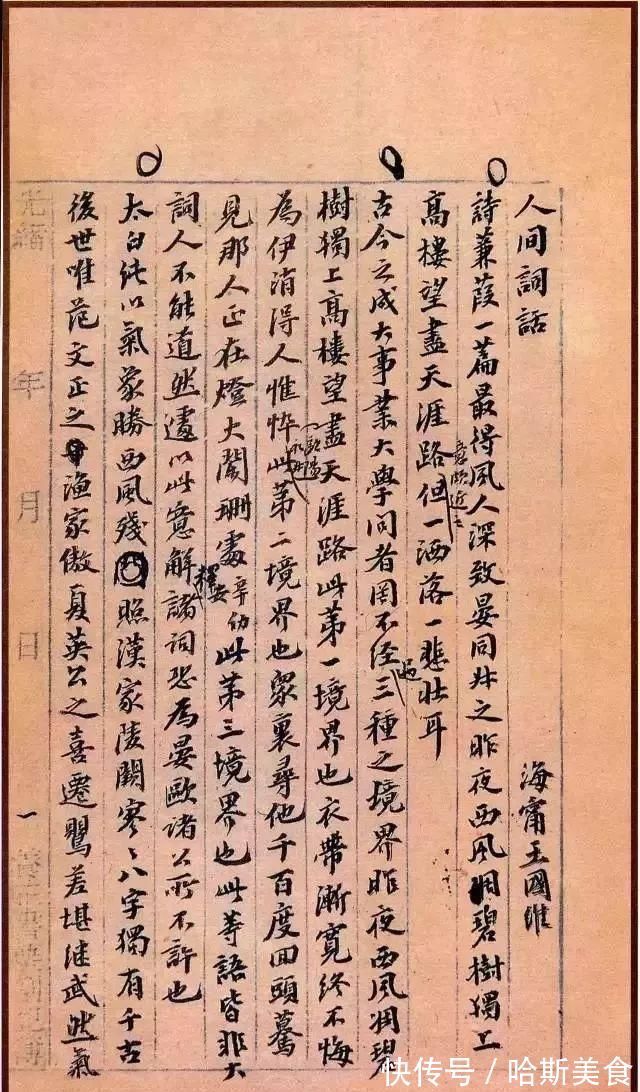 人间詞話 海甯王國維
詩蒹葭一篇最得風人深致晏同叔之昨夜西風凋碧樹獨上
高樓望盡天涯路意頗近之但一洒落一悲壯耳
古今之成大事業大學問者罔不經過三種之境界昨夜西風凋碧
樹獨上高樓望盡天涯路此第一境界也衣帶漸寬終不悔
為伊消得人憔悴歐陽永叔此第二境界也衆裏尋他千百度回頭驀
見那人正在燈火闌珊處辛幼安此第三境界也此等語皆非大
詞人不能道然遽以此意解釋諸詞恐為晏歐諸公所不許也
太白純以氣象勝西風殘照漢家陵闕寥〻八字獨有千古
後世唯范文正之漁家傲夏英公之喜遷鶯差堪継武然氣
光緒 年 月 日 一
快传号／哈斯美食